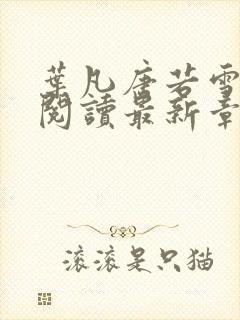 葉凡唐若雪
閱讀最新章
滚滚是只猫